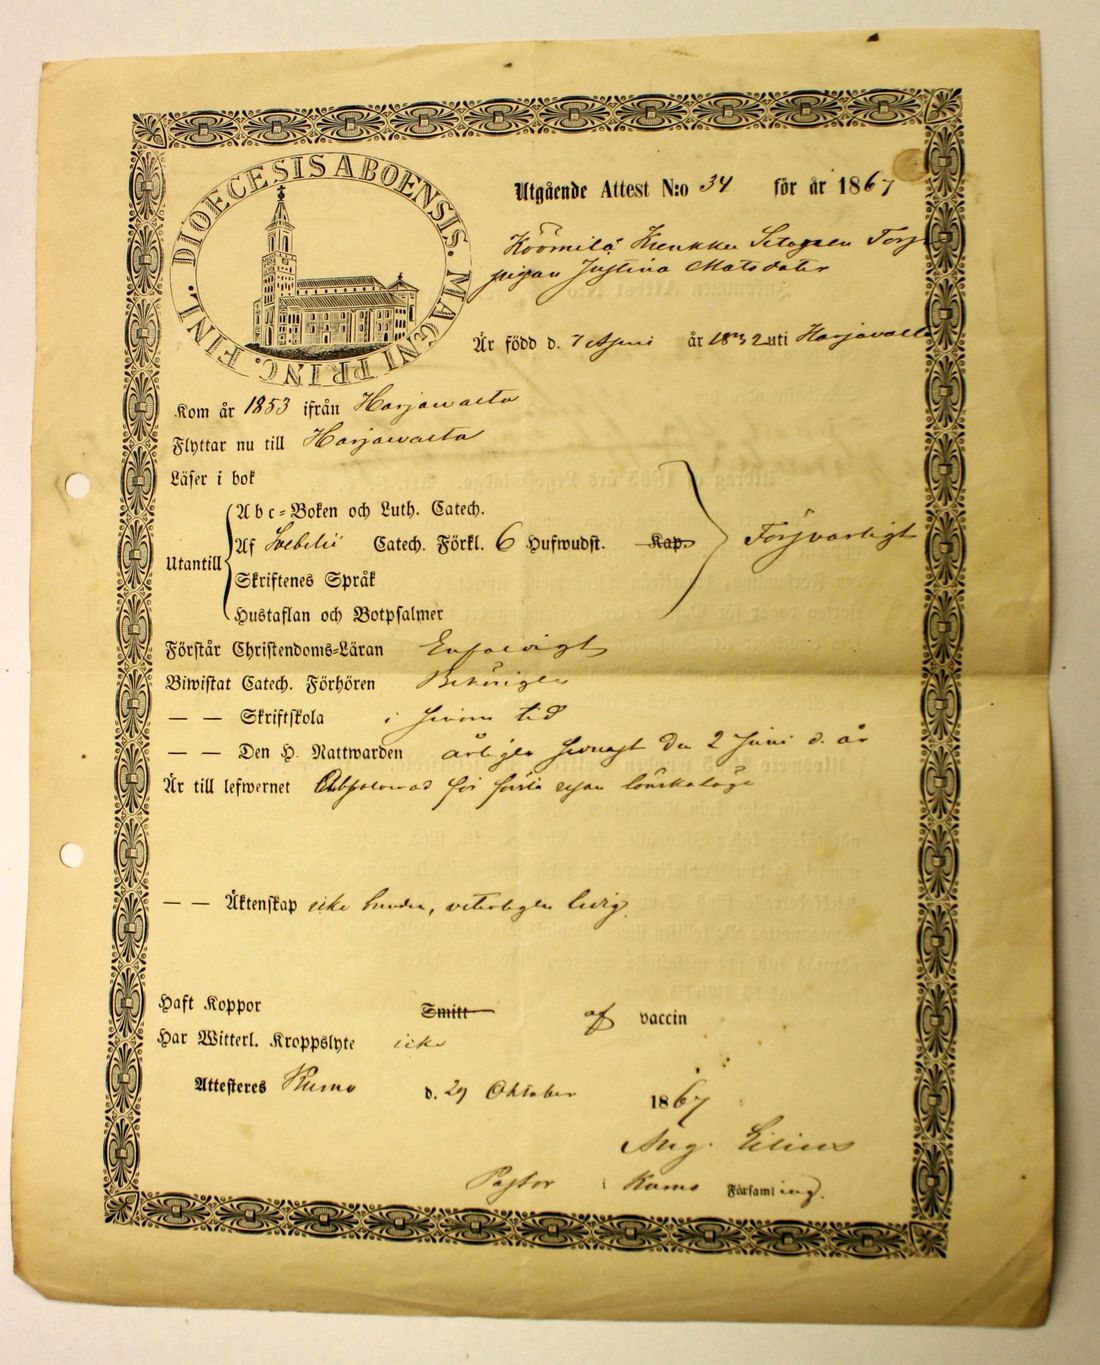 DIOECESIS ABOENSIS. MAGNI PRINC. FINL.
Utgående Attest N:o 34 för år 1867
Köömilä Krenkku Torp
pigan Justina Matsdoter
Är född d. 7 April år 1832 uti Harjavalta
Kom år 1853 ifrån Harjavalta
Flyttar nu till Harjavalta
Läser i bok
Abc-Boken och Luth. Catech.
Utantill Af Svebelii Catech. Förkl. 6 Hufwudst. Kap. Försvarligt
Skriftenes Språk
Hustaflan och Botpsalmer
Förstår Christendoms-Läran Enfaldigt
Biwistat Catech. Förhören Behörigen
— — Skriftskola i sinom tid
— — Den H. Nattwarden årligen senast den 2 Juni d. år
Är till lefwernet Absolverad för första resan lönskaläge
— — Äktenskap icke bunden, veterligen ledig.
Haft Koppor Smitt af vaccin
Har Witterl. Kroppslyte icke
Attesteres Kumo d. 29 Oktober 1867
Aug.
Pastor i Kumo Församling.